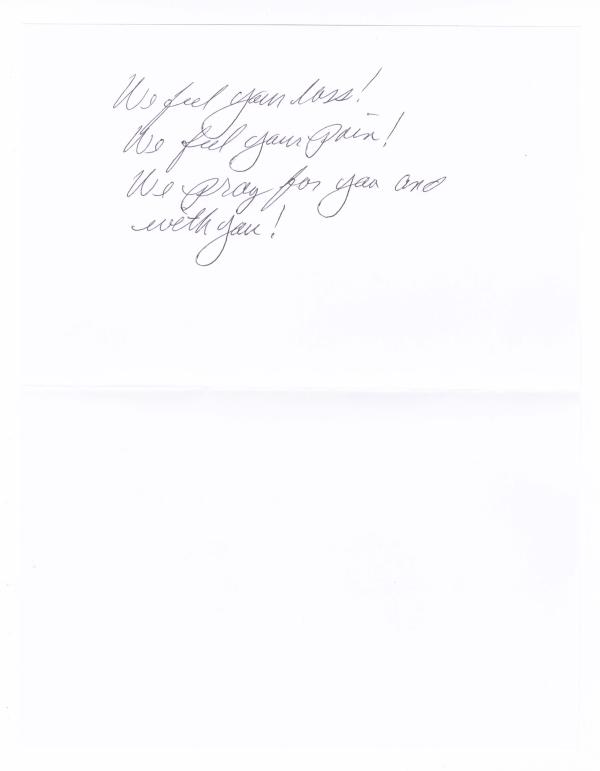 We feel your loss!
We feel your pain!
We pray for you and
with you!